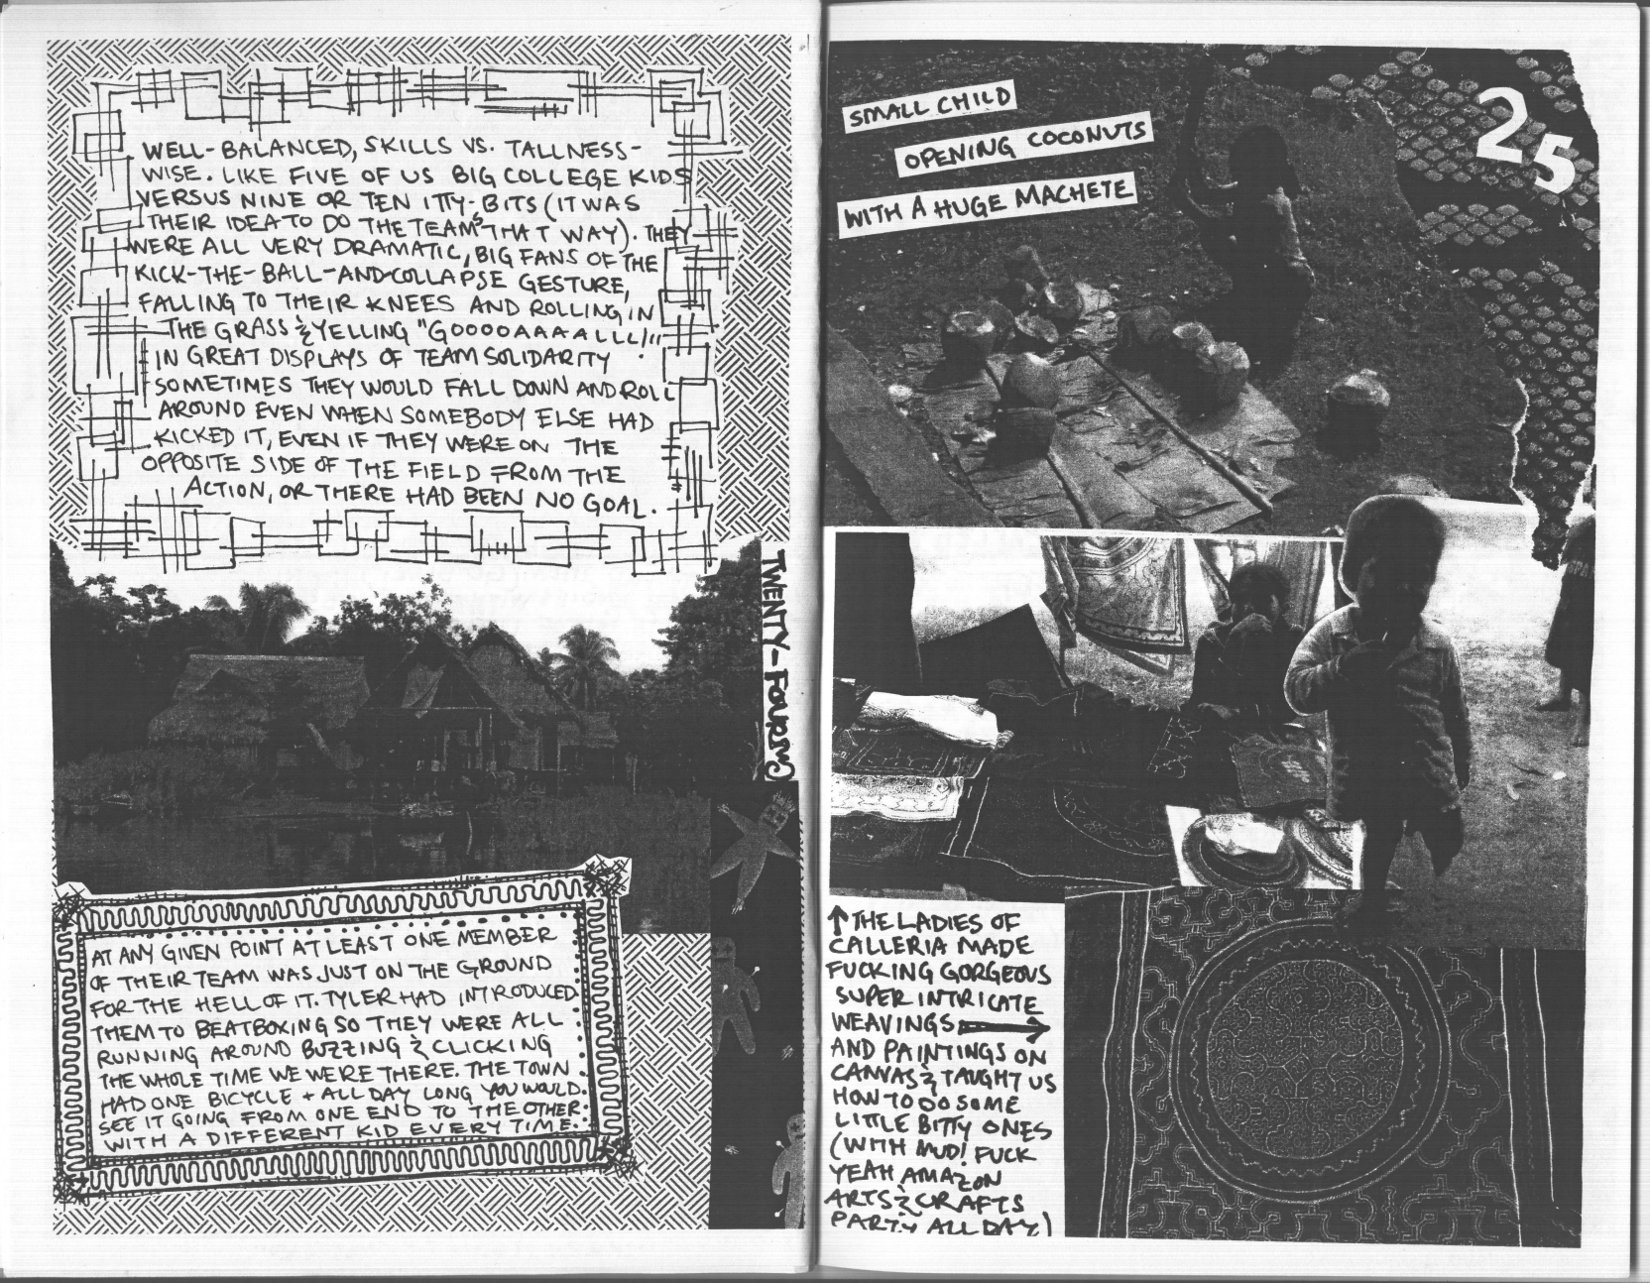 WELL-BALANCED, SKILLS VS. TALLNESS-
WISE. LIKE FIVE OF US BIG COLLEGE KIDS
VERSUS NINE OR TEN ITTY-BITS (IT WAS
THEIR IDEA TO DO THE TEAMS THAT WAY). THEY
WERE ALL VERY DRAMATIC, BIG FANS OF THE
KICK-THE-BALL-AND-COLLAPSE GESTURE,
FALLING TO THEIR KNEES AND ROLLING IN
THE GRASS & YELLING "GOOOOAAAALLL!"
IN GREAT DISPLAYS OF TEAM SOLIDARITY.
SOMETIMES THEY WOULD FALL DOWN AND ROLL
AROUND EVEN WHEN SOMEBODY ELSE HAD
KICKED IT, EVEN IF THEY WERE ON THE
OPPOSITE SIDE OF THE FIELD FROM THE
ACTION, OR THERE HAD BEEN NO GOAL.
TWENTY-FOUR
AT ANY GIVEN POINT AT LEAST ONE MEMBER
OF THEIR TEAM WAS JUST ON THE GROUND
FOR THE HELL OF IT. TYLER HAD INTRODUCED
THEM TO BEATBOXING SO THEY WERE ALL
RUNNING AROUND BUZZING & CLICKING
THE WHOLE TIME WE WERE THERE. THE TOWN
HAD ONE BICYCLE + ALL DAY LONG YOU WOULD
SEE IT GOING FROM ONE END TO THE OTHER
WITH A DIFFERENT KID EVERY TIME.
SMALL CHILD
OPENING COCONUTS
WITH A HUGE MACHETE
25
↑ THE LADIES OF
CALLERIA MADE
FUCKING GORGEOUS
SUPER INTRICATE
WEAVINGS →
AND PAINTINGS ON
CANVAS & TAUGHT US
HOW TO DO SOME
LITTLE BITTY ONES
(WITH MUD! FUCK
YEAH AMAZON
ARTS & CRAFTS
PARTY ALL DAY)